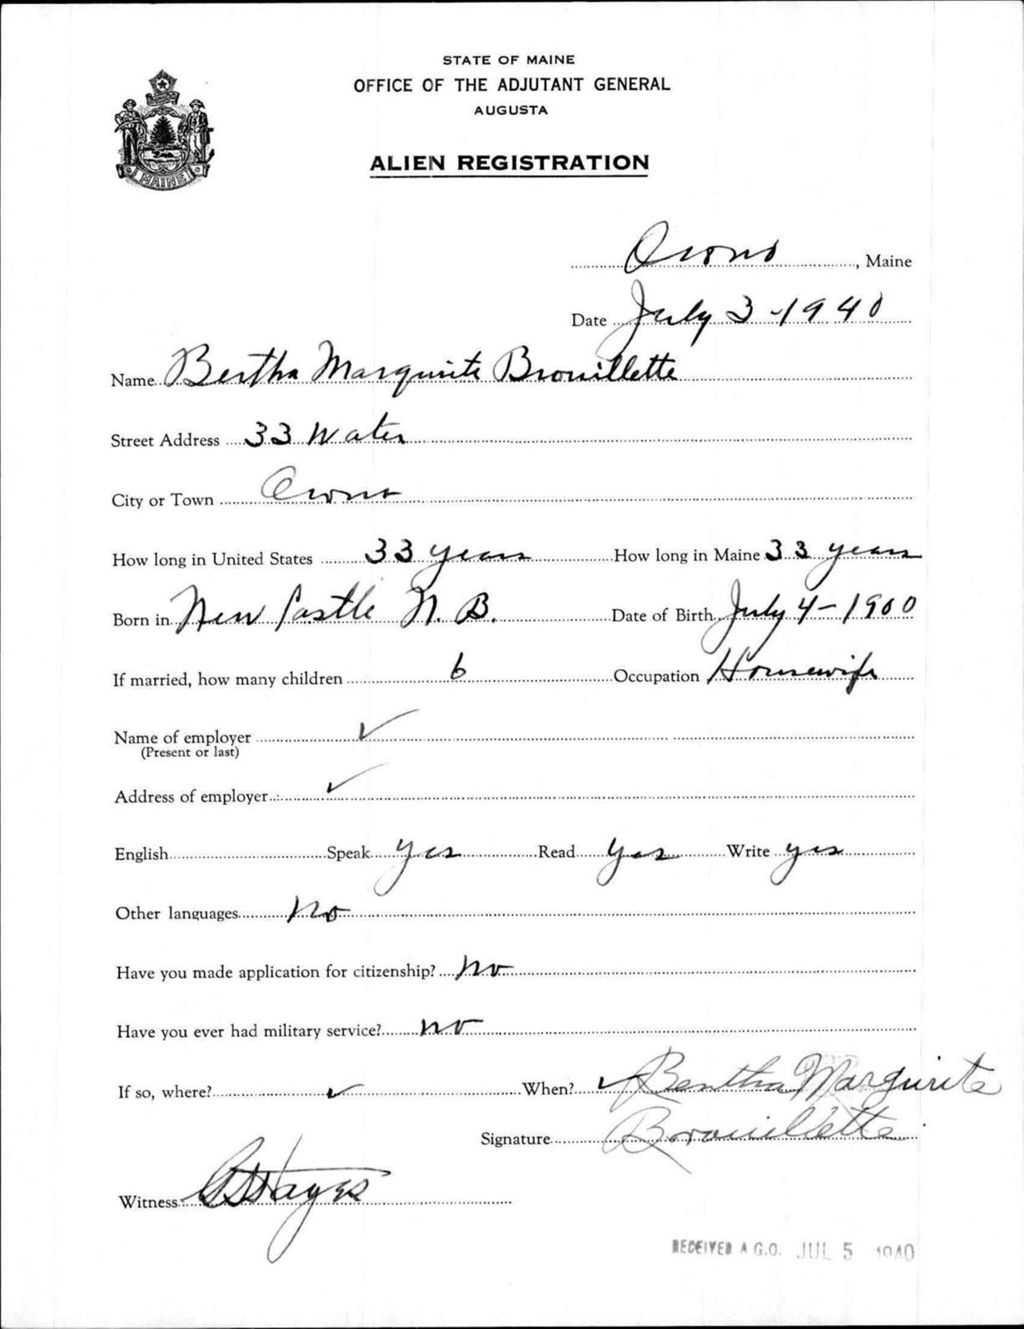 STATE OF MAINE
OFFICE OF THE ADJUTANT GENERAL
AUGUSTA
ALIEN REGISTRATION
MAINE
Orono, Maine
Date July 3 - 1940
Name Bertha Marguirite Brouillette
Street Address 33 Water
City or Town Orono
How long in United States 33 years How long in Maine 33 years
Born in New Castle N. B. Date of Birth July 4 - 1900
If married, how many children 6 Occupation Housewife
Name of employer ✓
(Present or last)
Address of employer ✓
English Speak yes Read yes Write yes
Other languages no
Have you made application for citizenship? no
Have you ever had military service? no
If so, where? ✓ When? ✓ Bertha Marguirite
Signature Brouillette
Witness Hayes
RECEIVED A.G.O. JUL 5 1940